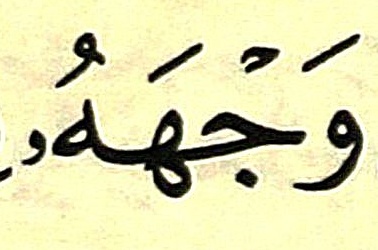 وَجۡهَهُۥ